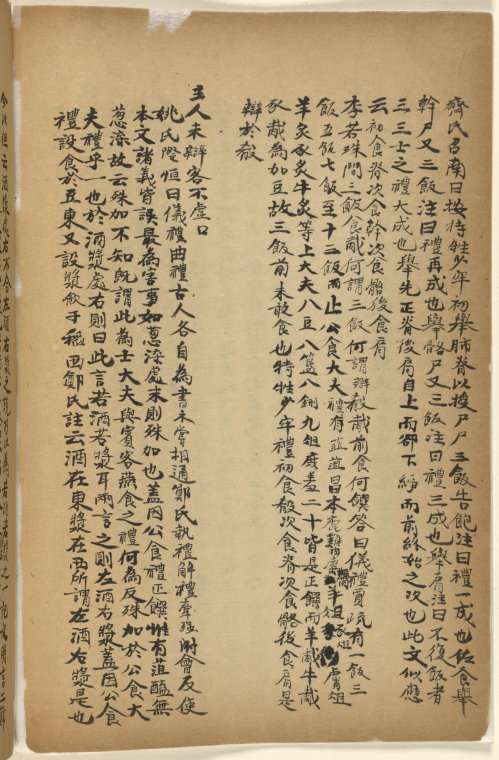 齊氏召南曰按特牲少牢初舉肺脊以授尸尸三飯告飽注曰禮一成也佐食舉
幹尸又三飯注曰禮再成也舉骼尸又三飯注曰禮三成也舉肩注曰不復飯者
三三士之禮大成也舉先正脊後肩自上而卻下綍而前終始之次也此文似應
云初食脊次食幹次食骼後食肩
李若珠問三飯食胾何謂三飯何謂辯殽胾前食何饌答曰儀禮賈疏有一飯三
飯五飯七飯至十二飯而止公食大夫禮有菹醢昌本
羊炙豕炙牛炙等上大夫八豆八簋八鉶九俎庶羞二十皆是正饌而羊胾牛胾
豕胾為加豆故三飯前未敢食也特牲少牢禮初食殽次食脊次食骼後食肩是
辯於殽
主人未辯客不虛口
姚氏際恒曰儀禮曲禮古人各自為書未嘗相通鄭氏執禮解禮牽強附會反使
本文諸義皆誤最為害事如蔥渫處末則殊加也蓋因公食禮正饌惟有菹醢無
蔥渫故云殊加不知既謂此為士大夫與賓客燕食之禮何為反殊加於公食大
夫禮乎一也於酒漿處右則曰此言若酒若漿耳兩言之則左酒右漿蓋因公食
禮設食於豆東又設漿飲于稻西鄭氏註云酒在東漿在西所謂左酒右漿是也